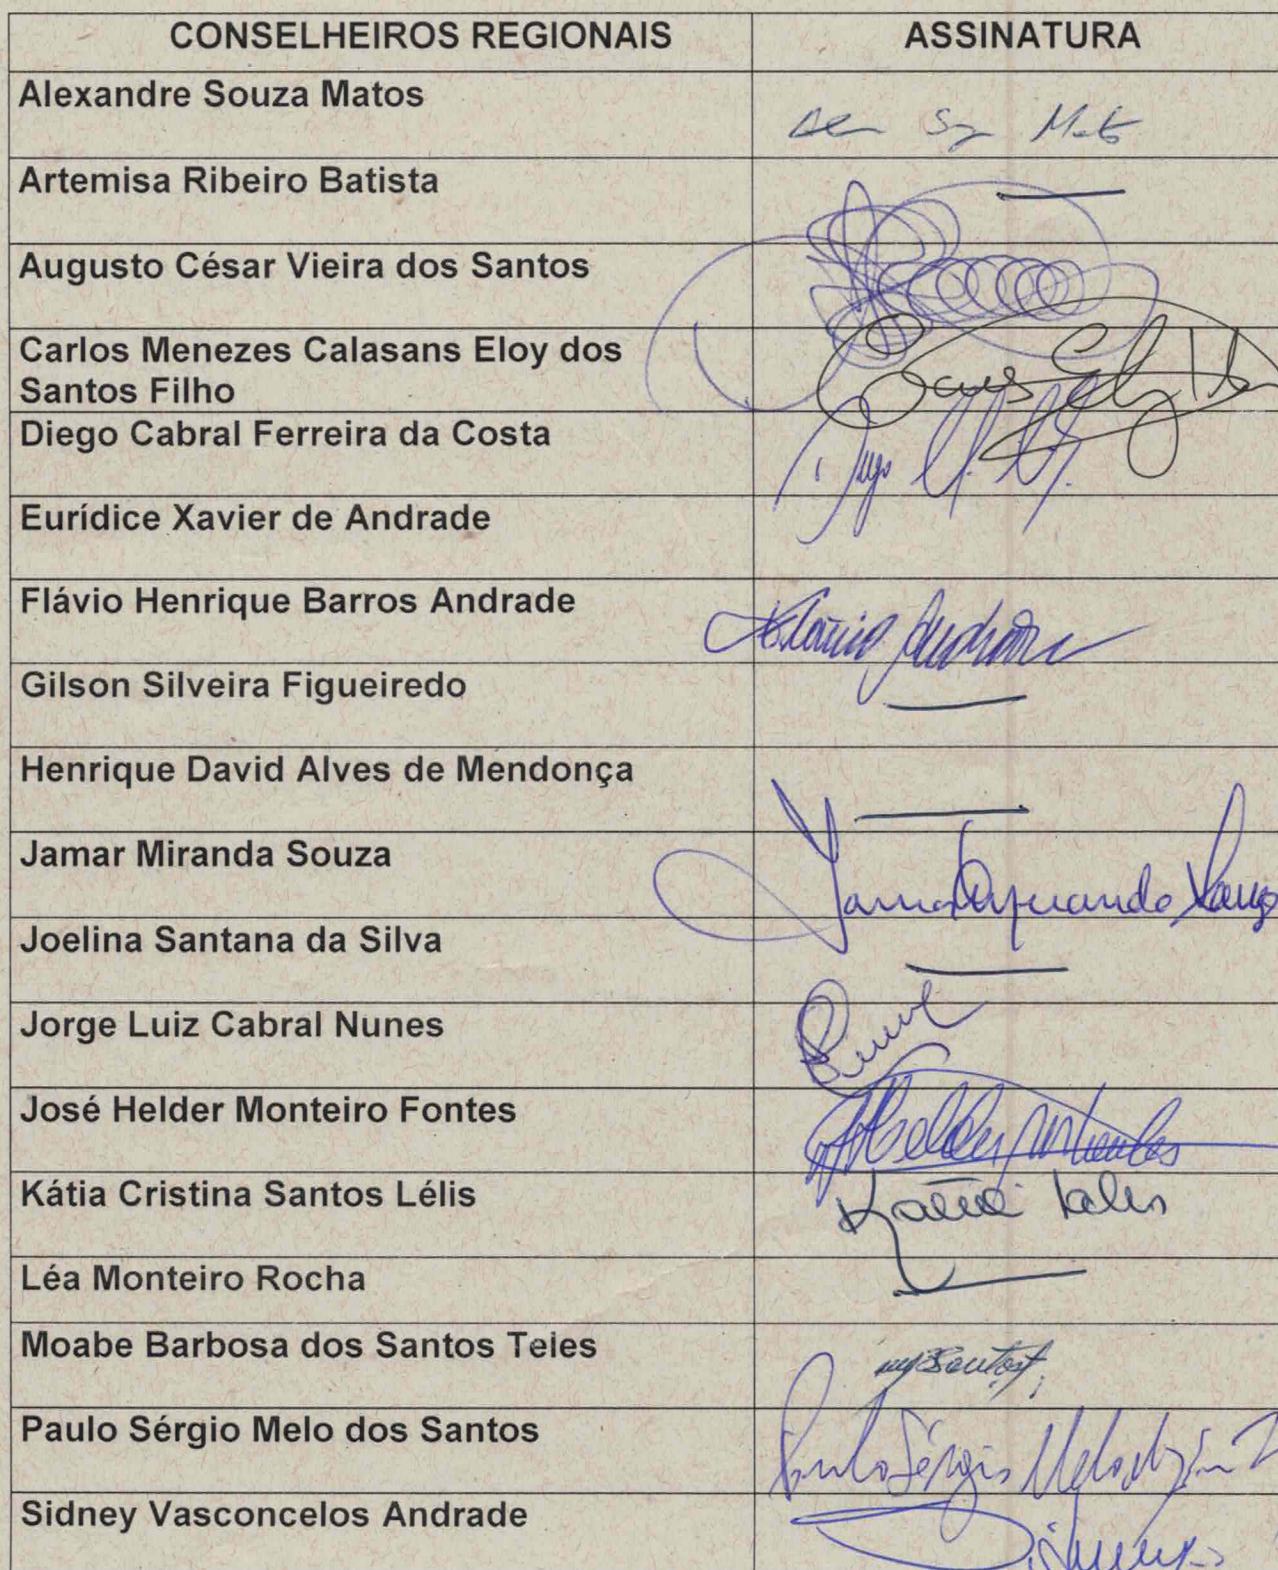 CONSELHEIROS REGIONAIS ASSINATURA
Alexandre Souza Matos
Artemisa Ribeiro Batista
Augusto César Vieira dos Santos
Carlos Menezes Calasans Eloy dos
Santos Filho
Diego Cabral Ferreira da Costa
Eurídice Xavier de Andrade
Flávio Henrique Barros Andrade Flávio Andrade
Gilson Silveira Figueiredo
Henrique David Alves de Mendonça
Jamar Miranda Souza
Joelina Santana da Silva
Jorge Luiz Cabral Nunes
José Helder Monteiro Fontes
Kátia Cristina Santos Lélis Kátia Lelis
Léa Monteiro Rocha
Moabe Barbosa dos Santos Teles
Paulo Sérgio Melo dos Santos Paulo Sérgio Melo
Sidney Vasconcelos Andrade